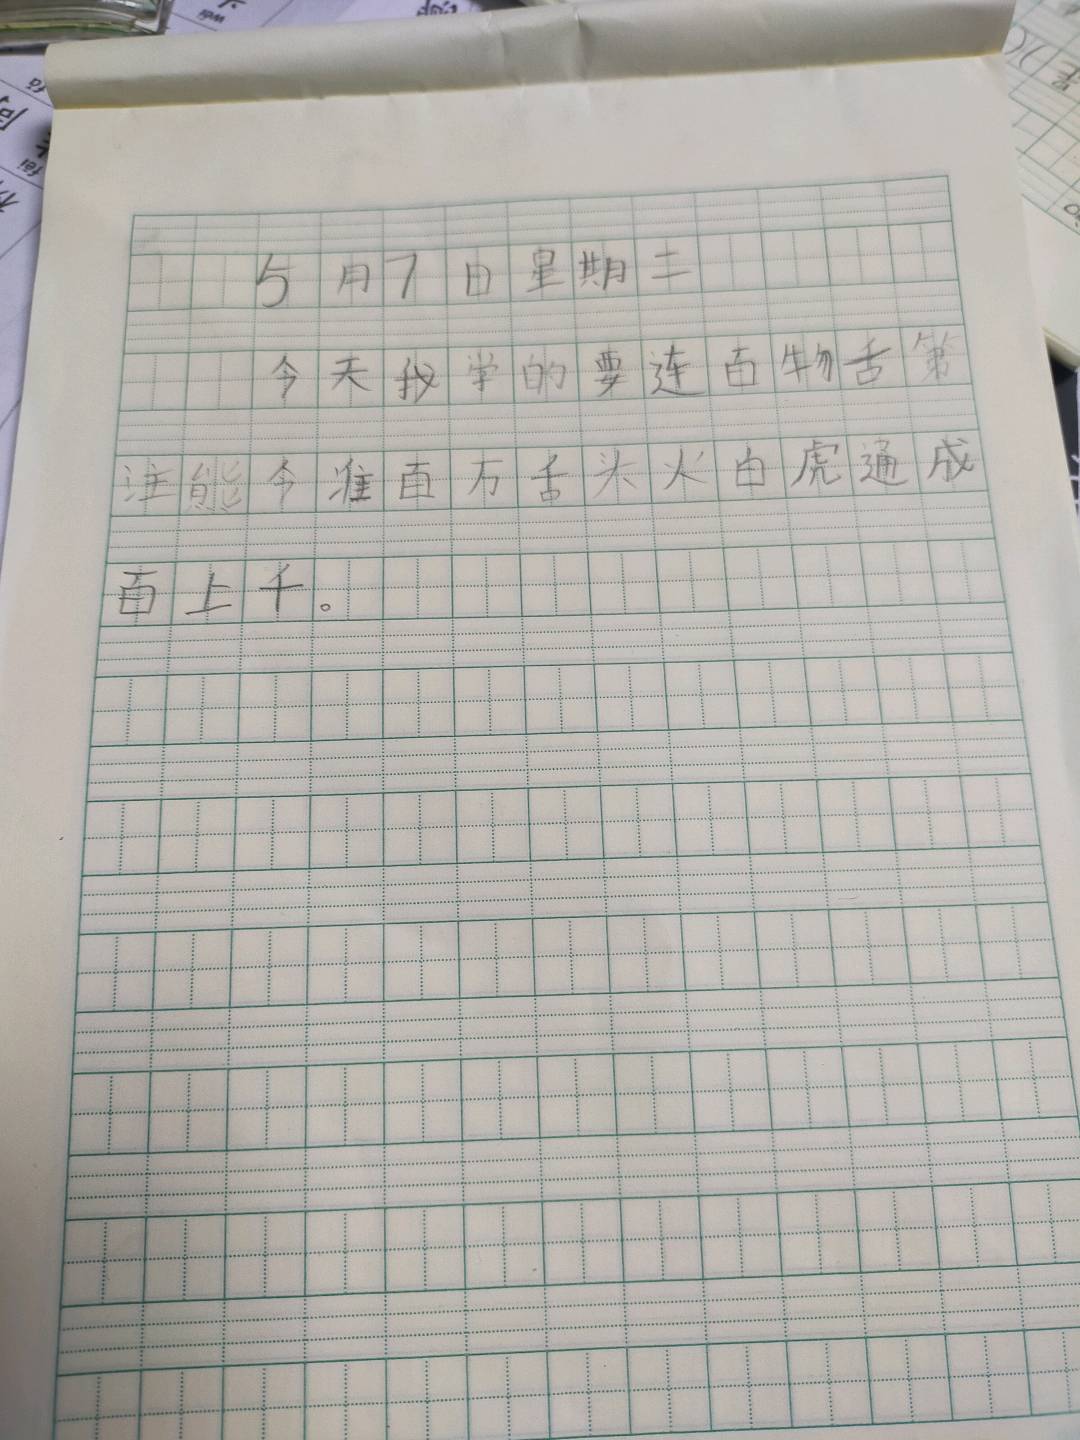 5月7日星期二
今天我学的要连百物舌第
注能今准百万舌头火白虎通成
百上千。